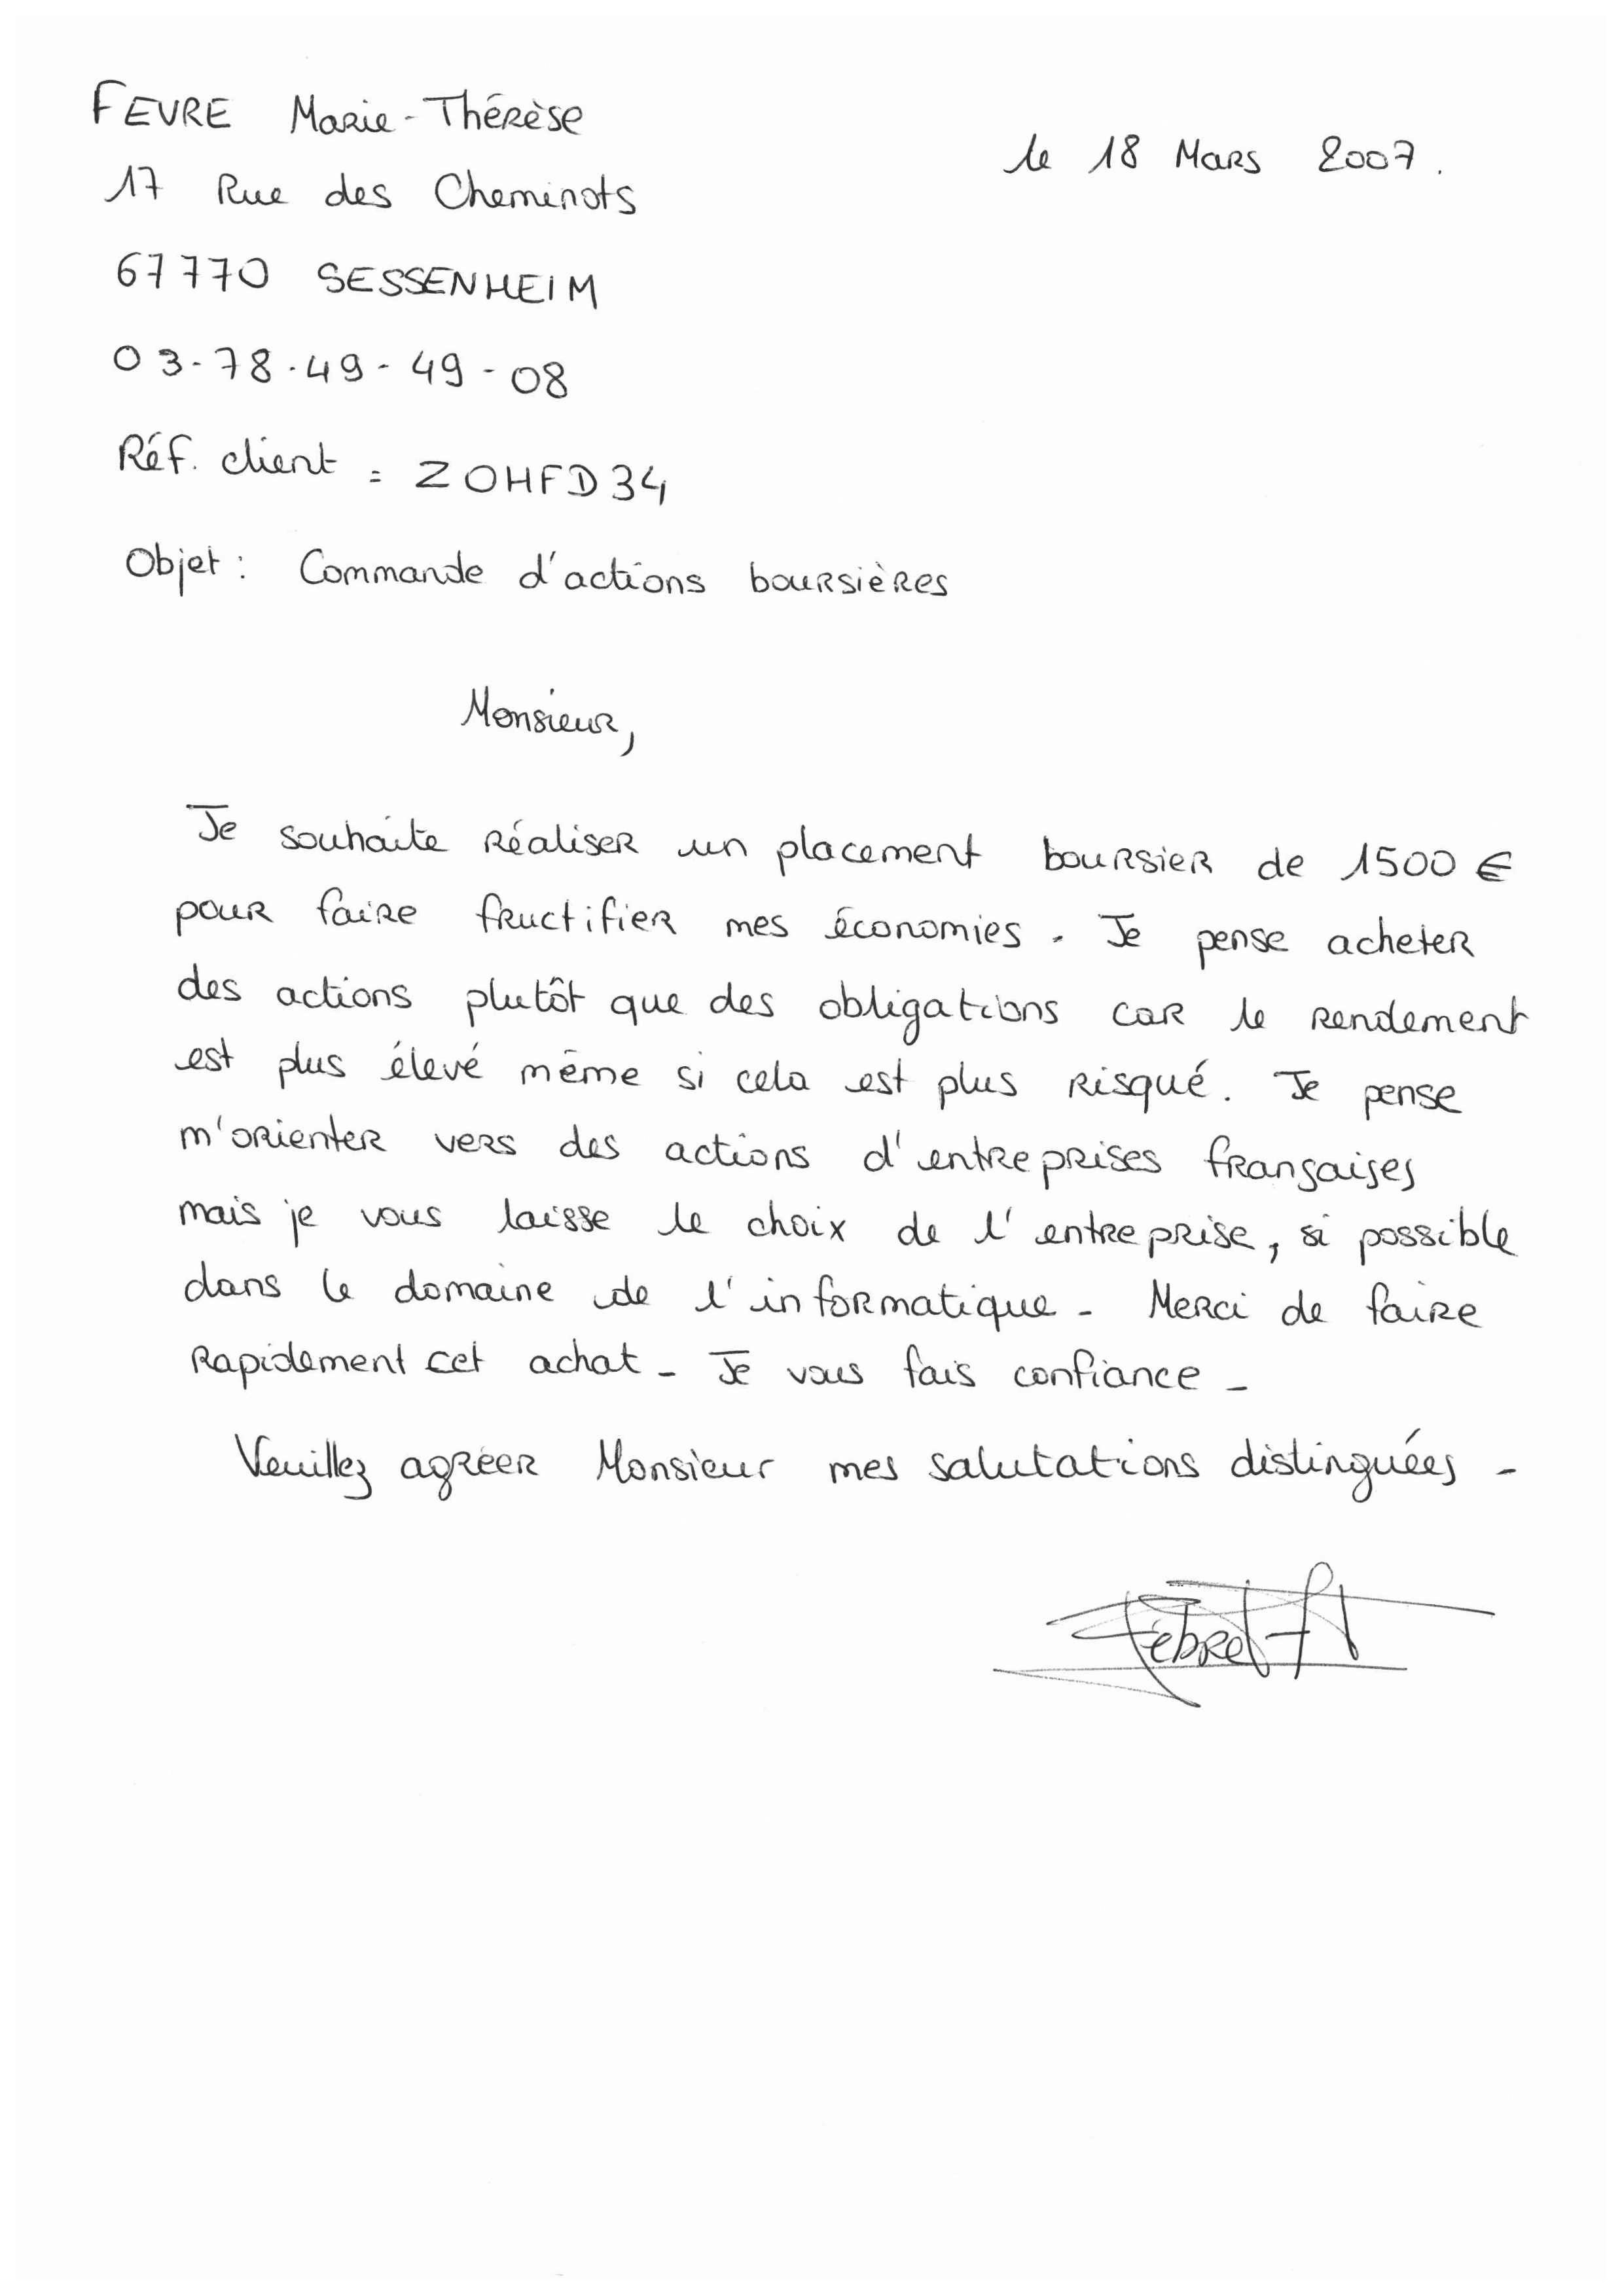 FEVRE Marie-Thérèse
le 18 Mars 2007.
17 Rue des Cheminots
67770 SESSENHEIM
03-78.49-49-08
Réf. client = ZOHFD34
Objet : Commande d'actions boursières
Monsieur,
Je souhaite réaliser un placement boursier de 1500 €
pour faire fructifier mes économies. Je pense acheter
des actions plutôt que des obligations car le rendement
est plus élevé même si cela est plus risqué. Je pense
m'orienter vers des actions d'entreprises françaises
mais je vous laisse le choix de l'entreprise, si possible
dans le domaine de l'informatique - Merci de faire
Rapidement cet achat - Je vous fais confiance -
Veuillez agréer Monsieur mes salutations distinguées -